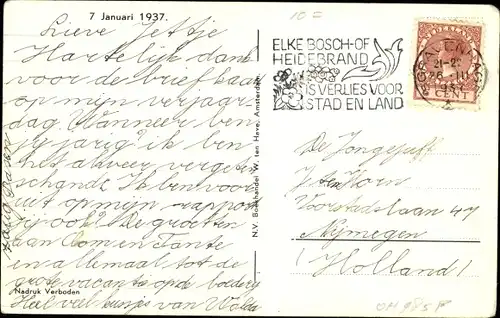 7 Januari 1937.
Lieve Jettje
Hartelijk dank
voor de briefkaart
op mijn verjaars
dag. Wanneer ben
jij jarig? ik ben
het alweer verget
schande. Ik ben voor
uit op mijn rapport
jij ook? De groeten
aan Oom en Tante
en allemaal tot de
grote vacantie op de boederij
Heel veel kusjes van
Nadruk Verboden
N.V. Boekhandel W. ten Have, Amsterdam
10 =
ELKE BOSCH- OF
HEIDEBRAND
IS VERLIES VOOR
STAD EN LAND
NEDERLAND
'S GRAVENHAGE
CENT
De Jongejuff
J. ten Horn
Voorstadslaan 47
Nijmegen
(Holland)
OH 985 P